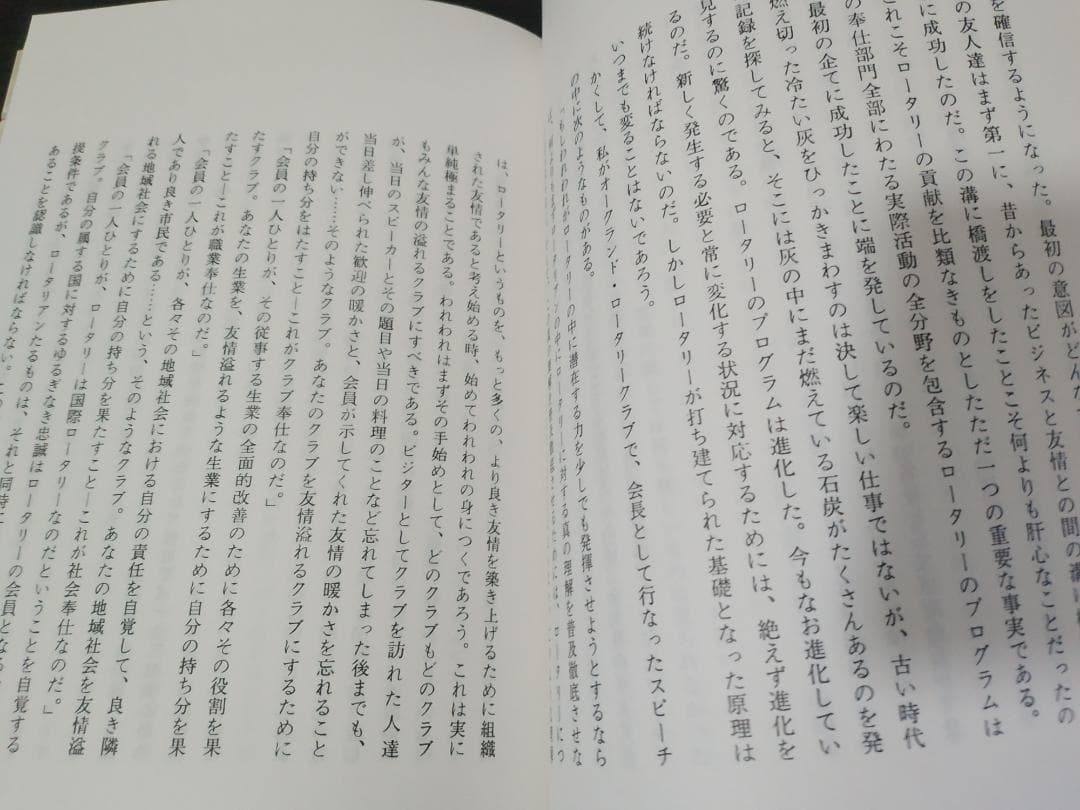 を確信するようになった。最初の意図がどんな
の友人達はまず第一に、昔からあったビジネスと友情との間の溝に
に成功したのだ。この溝に橋渡しをしたことこそ何よりも肝心なことだったの
これこそロータリーの貢献を比類なきものとしたただ一つの重要な事実である。
の奉仕部門全部にわたる実際活動の全分野を包含するロータリーのプログラムは
最初の企てに成功したことに端を発しているのだ。
燃え切った冷たい灰をひっかきまわすのは決して楽しい仕事ではないが、古い時代
記録を探してみると、そこには灰の中にまだ燃えている石炭がたくさんあるのを発
見するのに驚くのである。ロータリーのプログラムは進化した。今もなお進化してい
るのだ。新しく発生する必要と常に変化する状況に対応するためには、絶えず進化を
続けなければならないのだ。しかしロータリーが打ち建てられた基礎となった原理は
いつまでも変ることはないであろう。
かくして、私がオークランド・ロータリークラブで、会長として行なったスピーチ
の中に次のようなものがある。
もしわれわれがロータリーの中に潜在する力を少しでも発揮させようとするなら
の中にロータリーに対する真の理解を普及徹底させな
は、ロータリーというものを、もっと多くの、より良き友情を築き上げるために組織
された友情であると考え始める時、始めてわれわれの身につくであろう。これは実に
単純極まることである。われわれはまずその手始めとして、どのクラブもどのクラブ
もみんな友情の溢れるクラブにすべきである。ビジターとしてクラブを訪れた人達
が、当日のスピーカーとその題目や当日の料理のことなど忘れてしまった後までも、
当日差し伸べられた歓迎の暖かさと、会員が示してくれた友情の暖かさを忘れること
ができない……そのようなクラブ。あなたのクラブを友情溢れるクラブにするために
自分の持ち分をはたすこと―これがクラブ奉仕なのだ。」
「会員の一人ひとりが、その従事する生業の全面的改善のために各々その役割を果
たすクラブ。あなたの生業を、友情溢れるような生業にするために自分の持ち分を果
たすこと―これが職業奉仕なのだ。」
「会員の一人ひとりが、各々その地域社会における自分の責任を自覚して、良き隣
人であり良き市民である……という、そのようなクラブ。あなたの地域社会を友情溢
れる地域社会にするために自分の持ち分を果たすこと―これが社会奉仕なのだ。」
「会員の一人ひとりが、ロータリーは国際ロータリーなのだということを自覚する
クラブ。自分の属する国に対するゆるぎなき忠誠はロータリーの会員となる
提条件であるが、ロータリアンたるものは、それと同時に
あることを認識しなければならない。